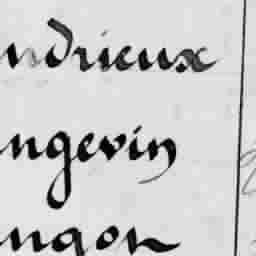 ndrieux
ngevin
ngon